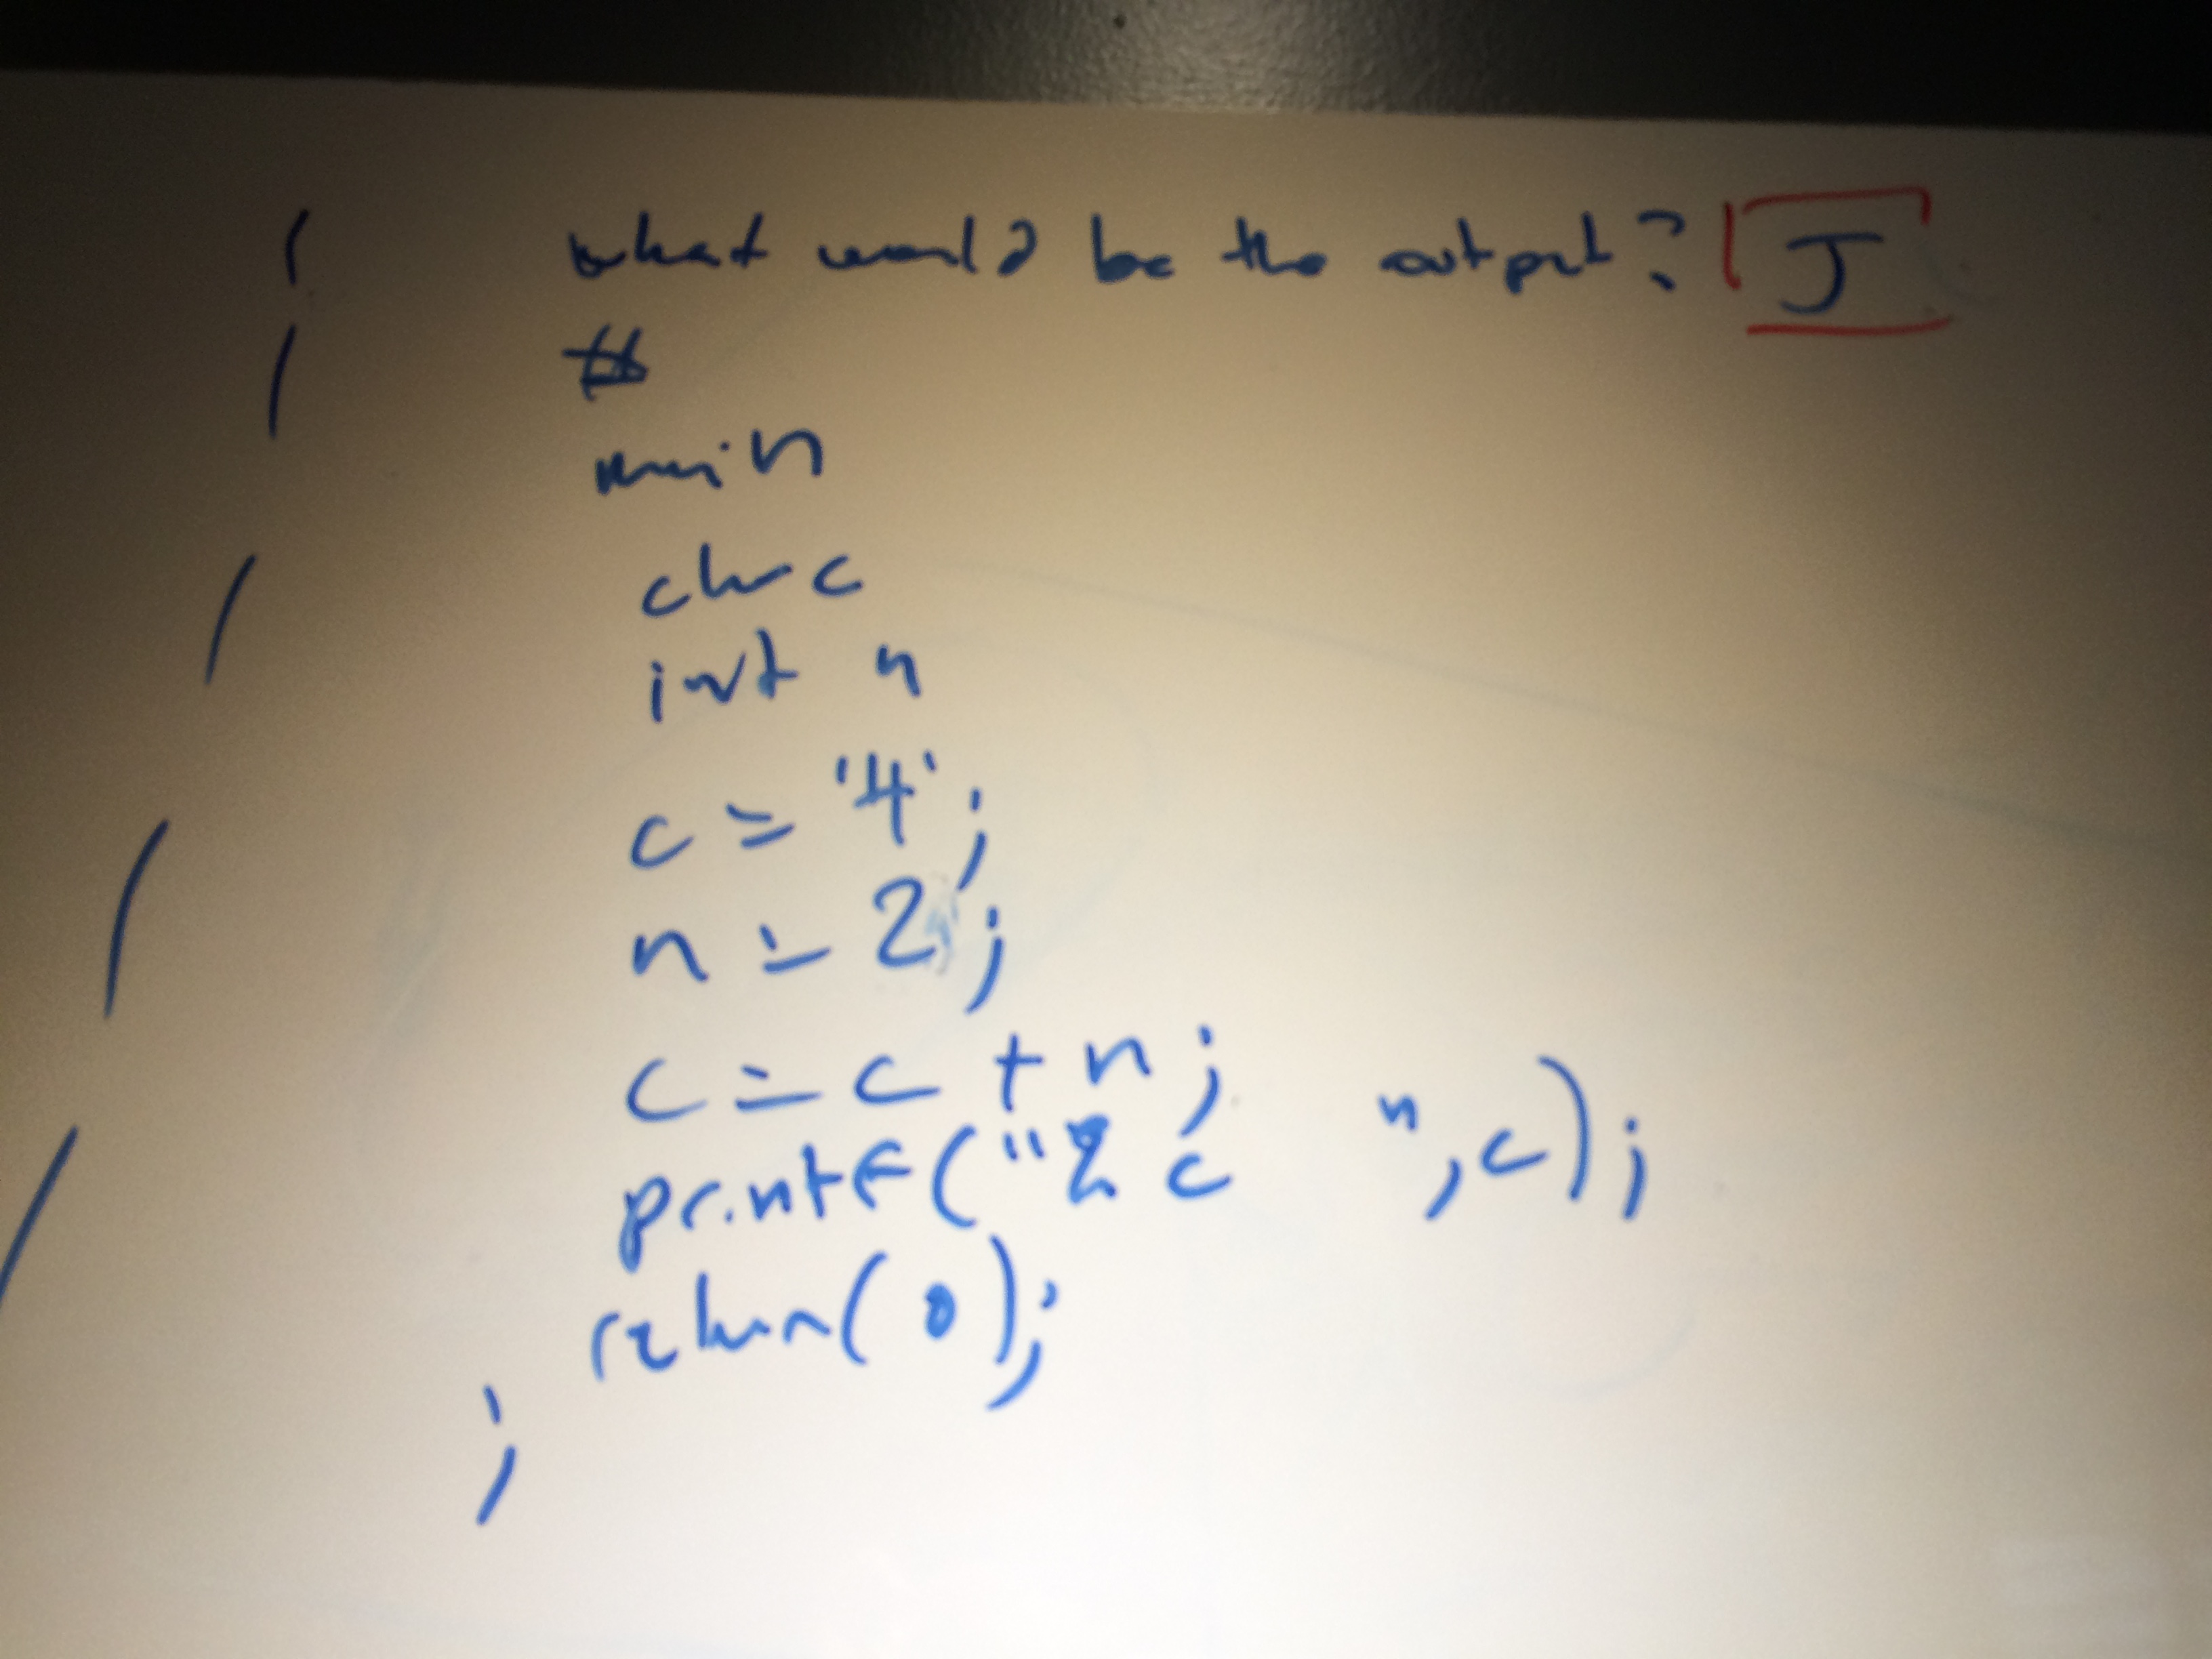 what would be the output? J
#
main
char c
int n
c = '4';
n = 2;
c = c + n;
printf("% c ",c);
return(0);
;